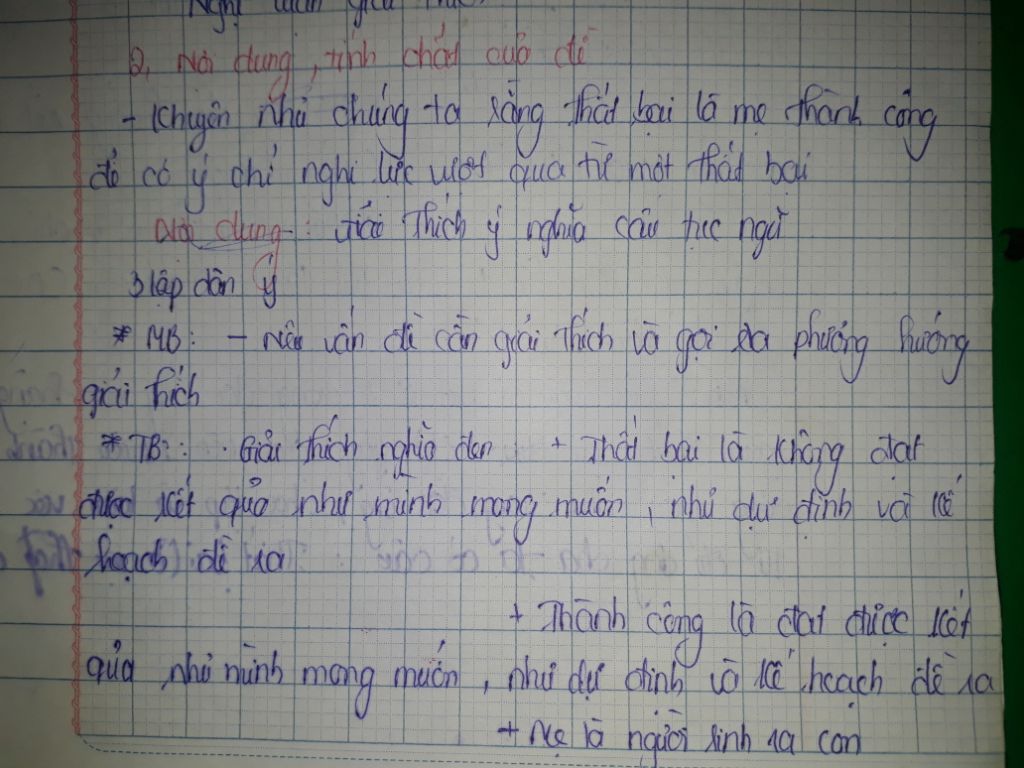 Nghị luận giải thích
2, Nội dung, tính chất của đề
- Khuyên nhủ chúng ta rằng thất bại là mẹ thành công
để có ý chí nghị lực vượt qua từ một thất bại
Nội dung : Giải thích ý nghĩa câu tục ngữ
3 lập dàn ý
* MB: - Nêu vấn đề cần giải thích và gợi ra phương hướng
giải thích
* TB: . Giải thích nghĩa đen + Thất bại là không đạt
được kết quả như mình mong muốn, như dự định và kế
hoạch đề ra
+ Thành công là đạt được kết
quả như mình mong muốn, như dự định và kế hoạch đề ra
+ Mẹ là người sinh ra con